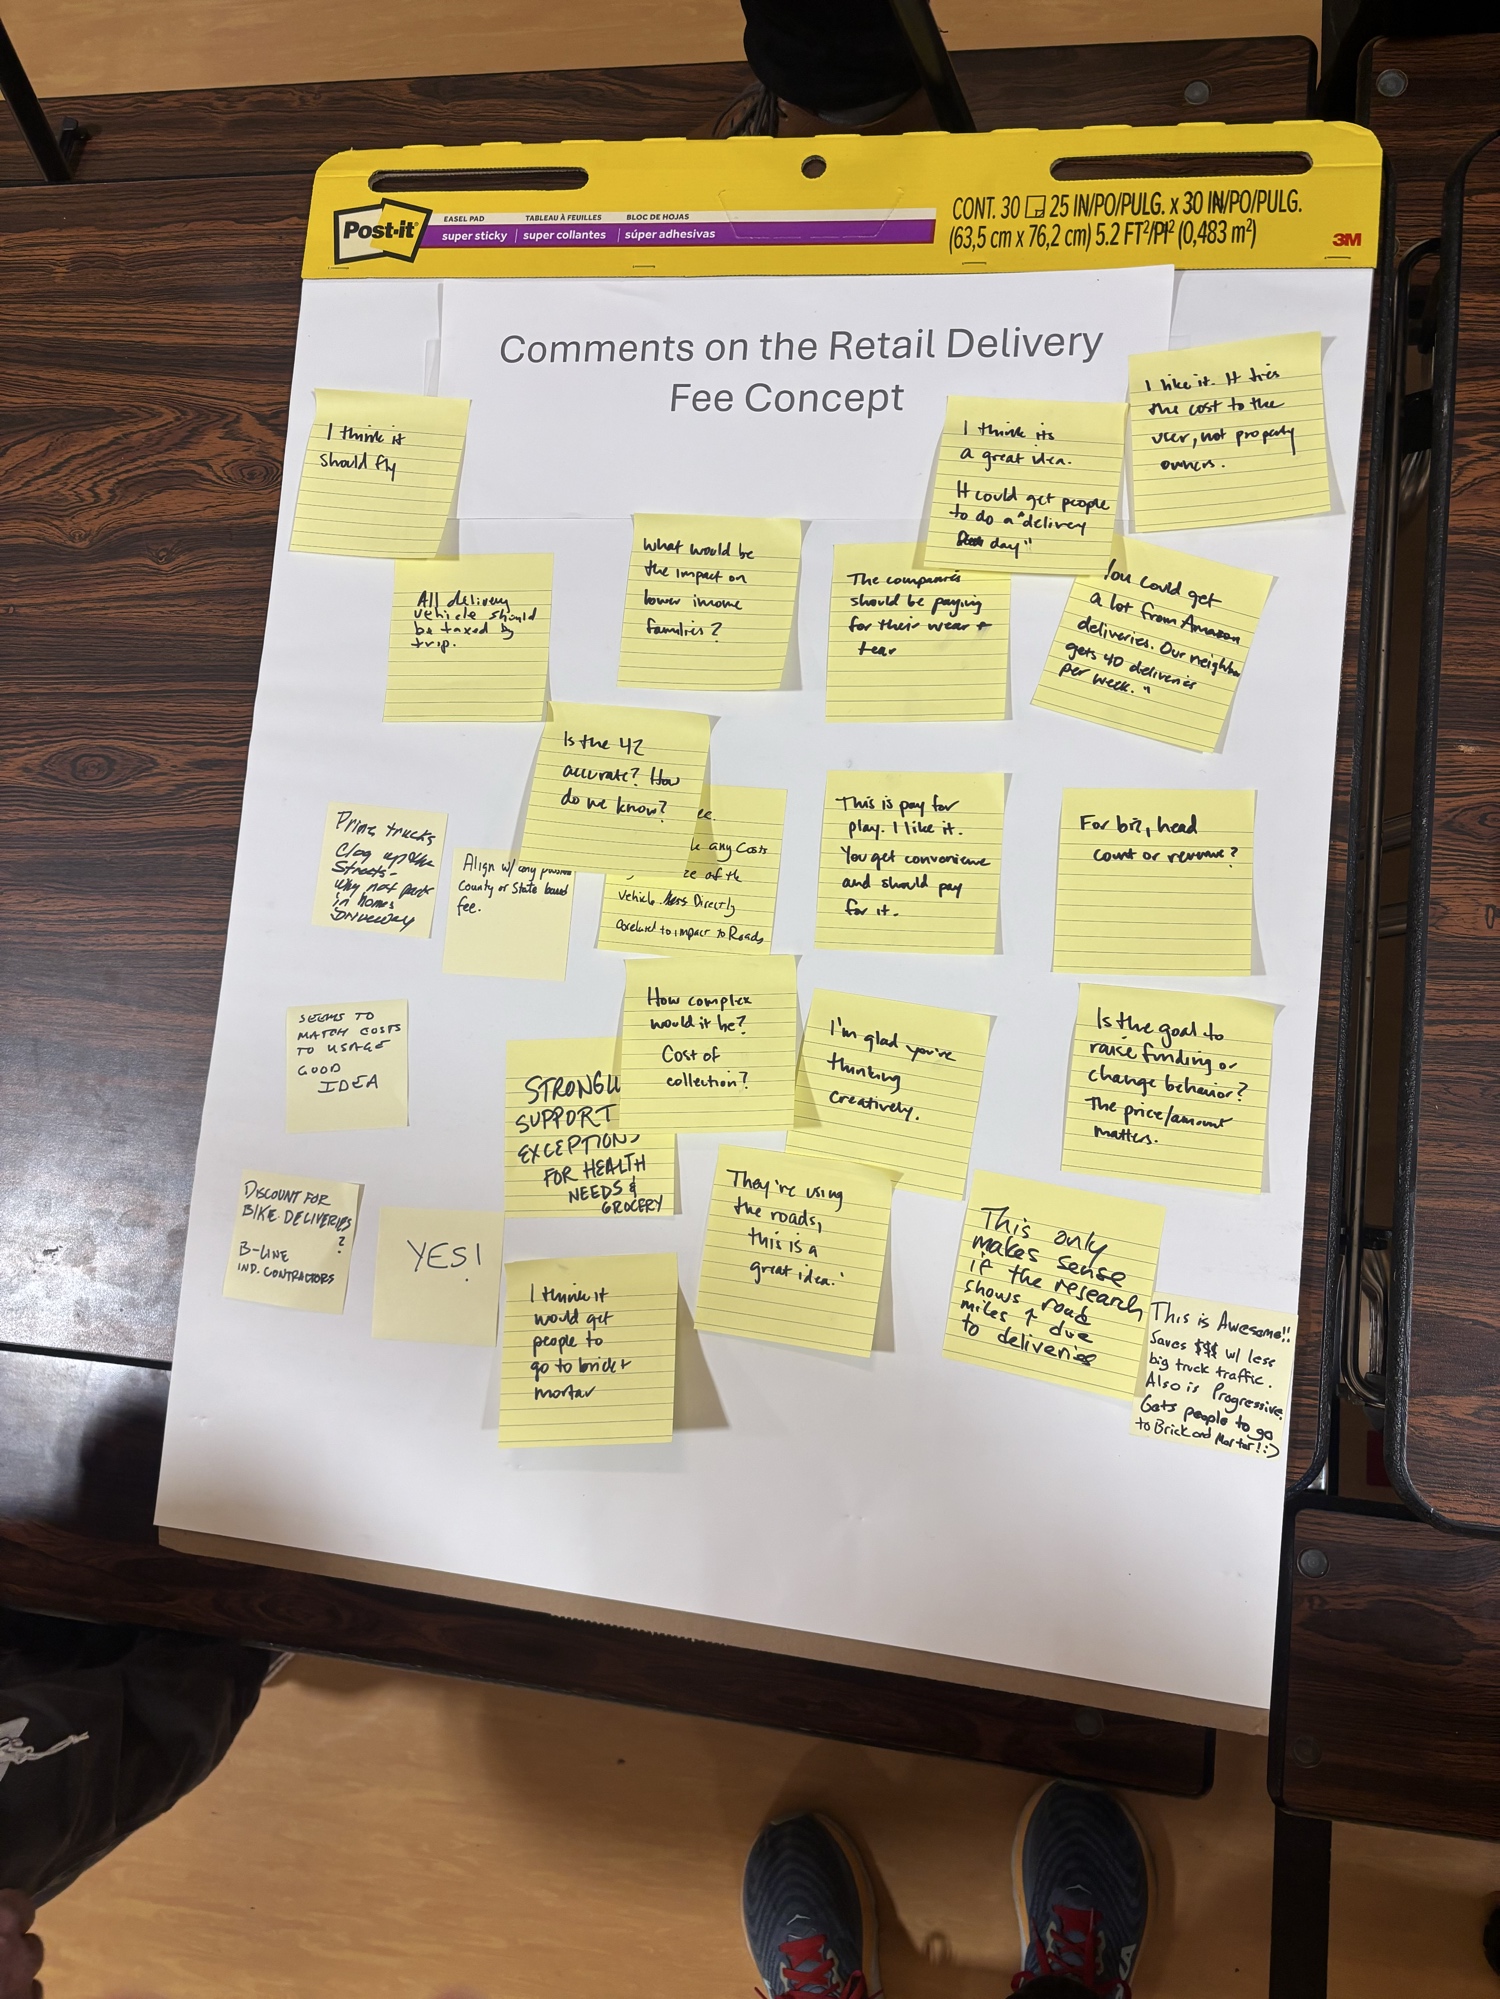 Post-it
EASEL PAD
super sticky
TABLEAU À FEUILLES
super collantes
BLOC DE HOJAS
súper adhesivas
CONT. 30 25 IN/PO/PULG. x 30 IN/PO/PULG.
(63,5 cm x 76,2 cm) 5.2 FT²/PI² (0,483 m²)
3M
Comments on the Retail Delivery
Fee Concept
I think it
should fly
I think its
a great idea.
It could get people
to do a "delivery
day"
I like it. It ties
the cost to the
user, not property
owners.
All delivery
vehicle should
be taxed by
trip.
What would be
the impact on
lower income
families?
The companies
should be paying
for their wear +
tear
You could get
a lot from Amazon
deliveries. Our neighbor
gets 40 deliveries
per week."
Is the 42
accurate? How
do we know?
Prime trucks
Clog up the
Streets-
Why not park
in homes
Driveway
Align w/ any
County or State based
fee.
ee.
any Costs
ze of the
vehicle Directly
Corelated to impact to Roads
This is pay for
play. I like it.
You get convenience
and should pay
for it.
For biz, head
count or revenue?
SEEMS TO
MATCH COSTS
TO USAGE
GOOD
IDEA
STRONGLY
SUPPORT
EXCEPTIONS
FOR HEALTH
NEEDS &
GROCERY
How complex
would it be?
Cost of
collection?
I'm glad you're
thinking
creatively.
Is the goal to
raise funding or
change behavior?
The price/amount
matters.
DISCOUNT FOR
BIKE DELIVERIES
?
B-LINE
IND. CONTRACTORS
YES!
I think it
would get
people to
go to brick +
mortar
They're using
the roads,
this is a
great idea.
This only
makes sense
if the research
shows road
miles ↑ due
to deliveries
This is Awesome!!
Saves $$$ w/ less
big truck traffic.
Also is Progressive.
Gets people to go
to Brick and Mortar! :)